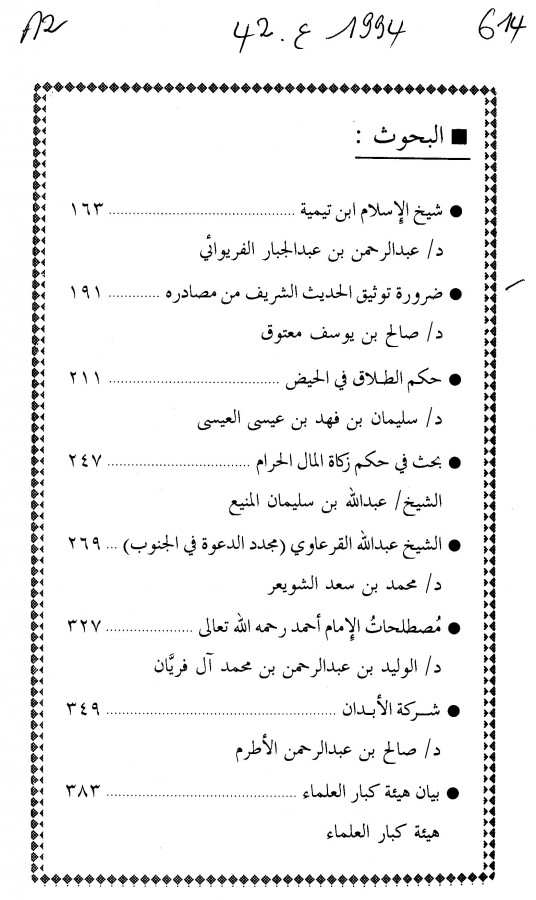 ٨٢ 42. ع 1994 614
■ البحوث :
● شيخ الإسلام ابن تيمية ............................................ ١٦٣
د/ عبدالرحمن بن عبدالجبار الفريوائي
● ضرورة توثيق الحديث الشريف من مصادره ............ ١٩١
د/ صالح بن يوسف معتوق
● حكم الطلاق في الحيض ........................................ ٢١١
د/ سليمان بن فهد بن عيسى العيسى
● بحث في حكم زكاة المال الحرام .................................. ٢٤٧
الشيخ/ عبدالله بن سليمان المنيع
● الشيخ عبدالله القرعاوي (مجدد الدعوة في الجنوب) ... ٢٦٩
د/ محمد بن سعد الشويعر
● مُصطلحاتُ الإمام أحمد رحمه الله تعالى ..................... ٣٢٧
د/ الوليد بن عبدالرحمن بن محمد آل فريَّان
● شـــركة الأبـدان ...................................................... ٣٤٩
د/ صالح بن عبدالرحمن الأطرم
● بيان هيئة كبار العلماء ............................................. ٣٨٣
هيئة كبار العلماء